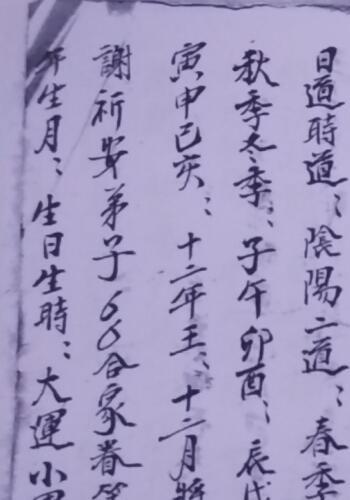 日道時道：陰陽二道：春季
秋季冬季：子午卯酉：辰戌
寅申巳亥：十二年王：十二月將
謝祈安弟子厶厶合家眷等
年生月：生日生時：大運小